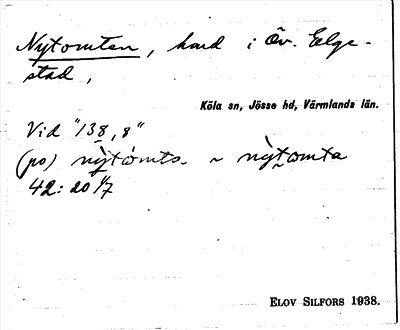 Nytomten, hmd i Öv. Elge-
stad,
Köla sn, Jösse hd, Värmlands län.
Vid "138,8"
(po) nỳtòmts- ~ nỳtomta
42: 20/7
ELOV SILFORS 1938.